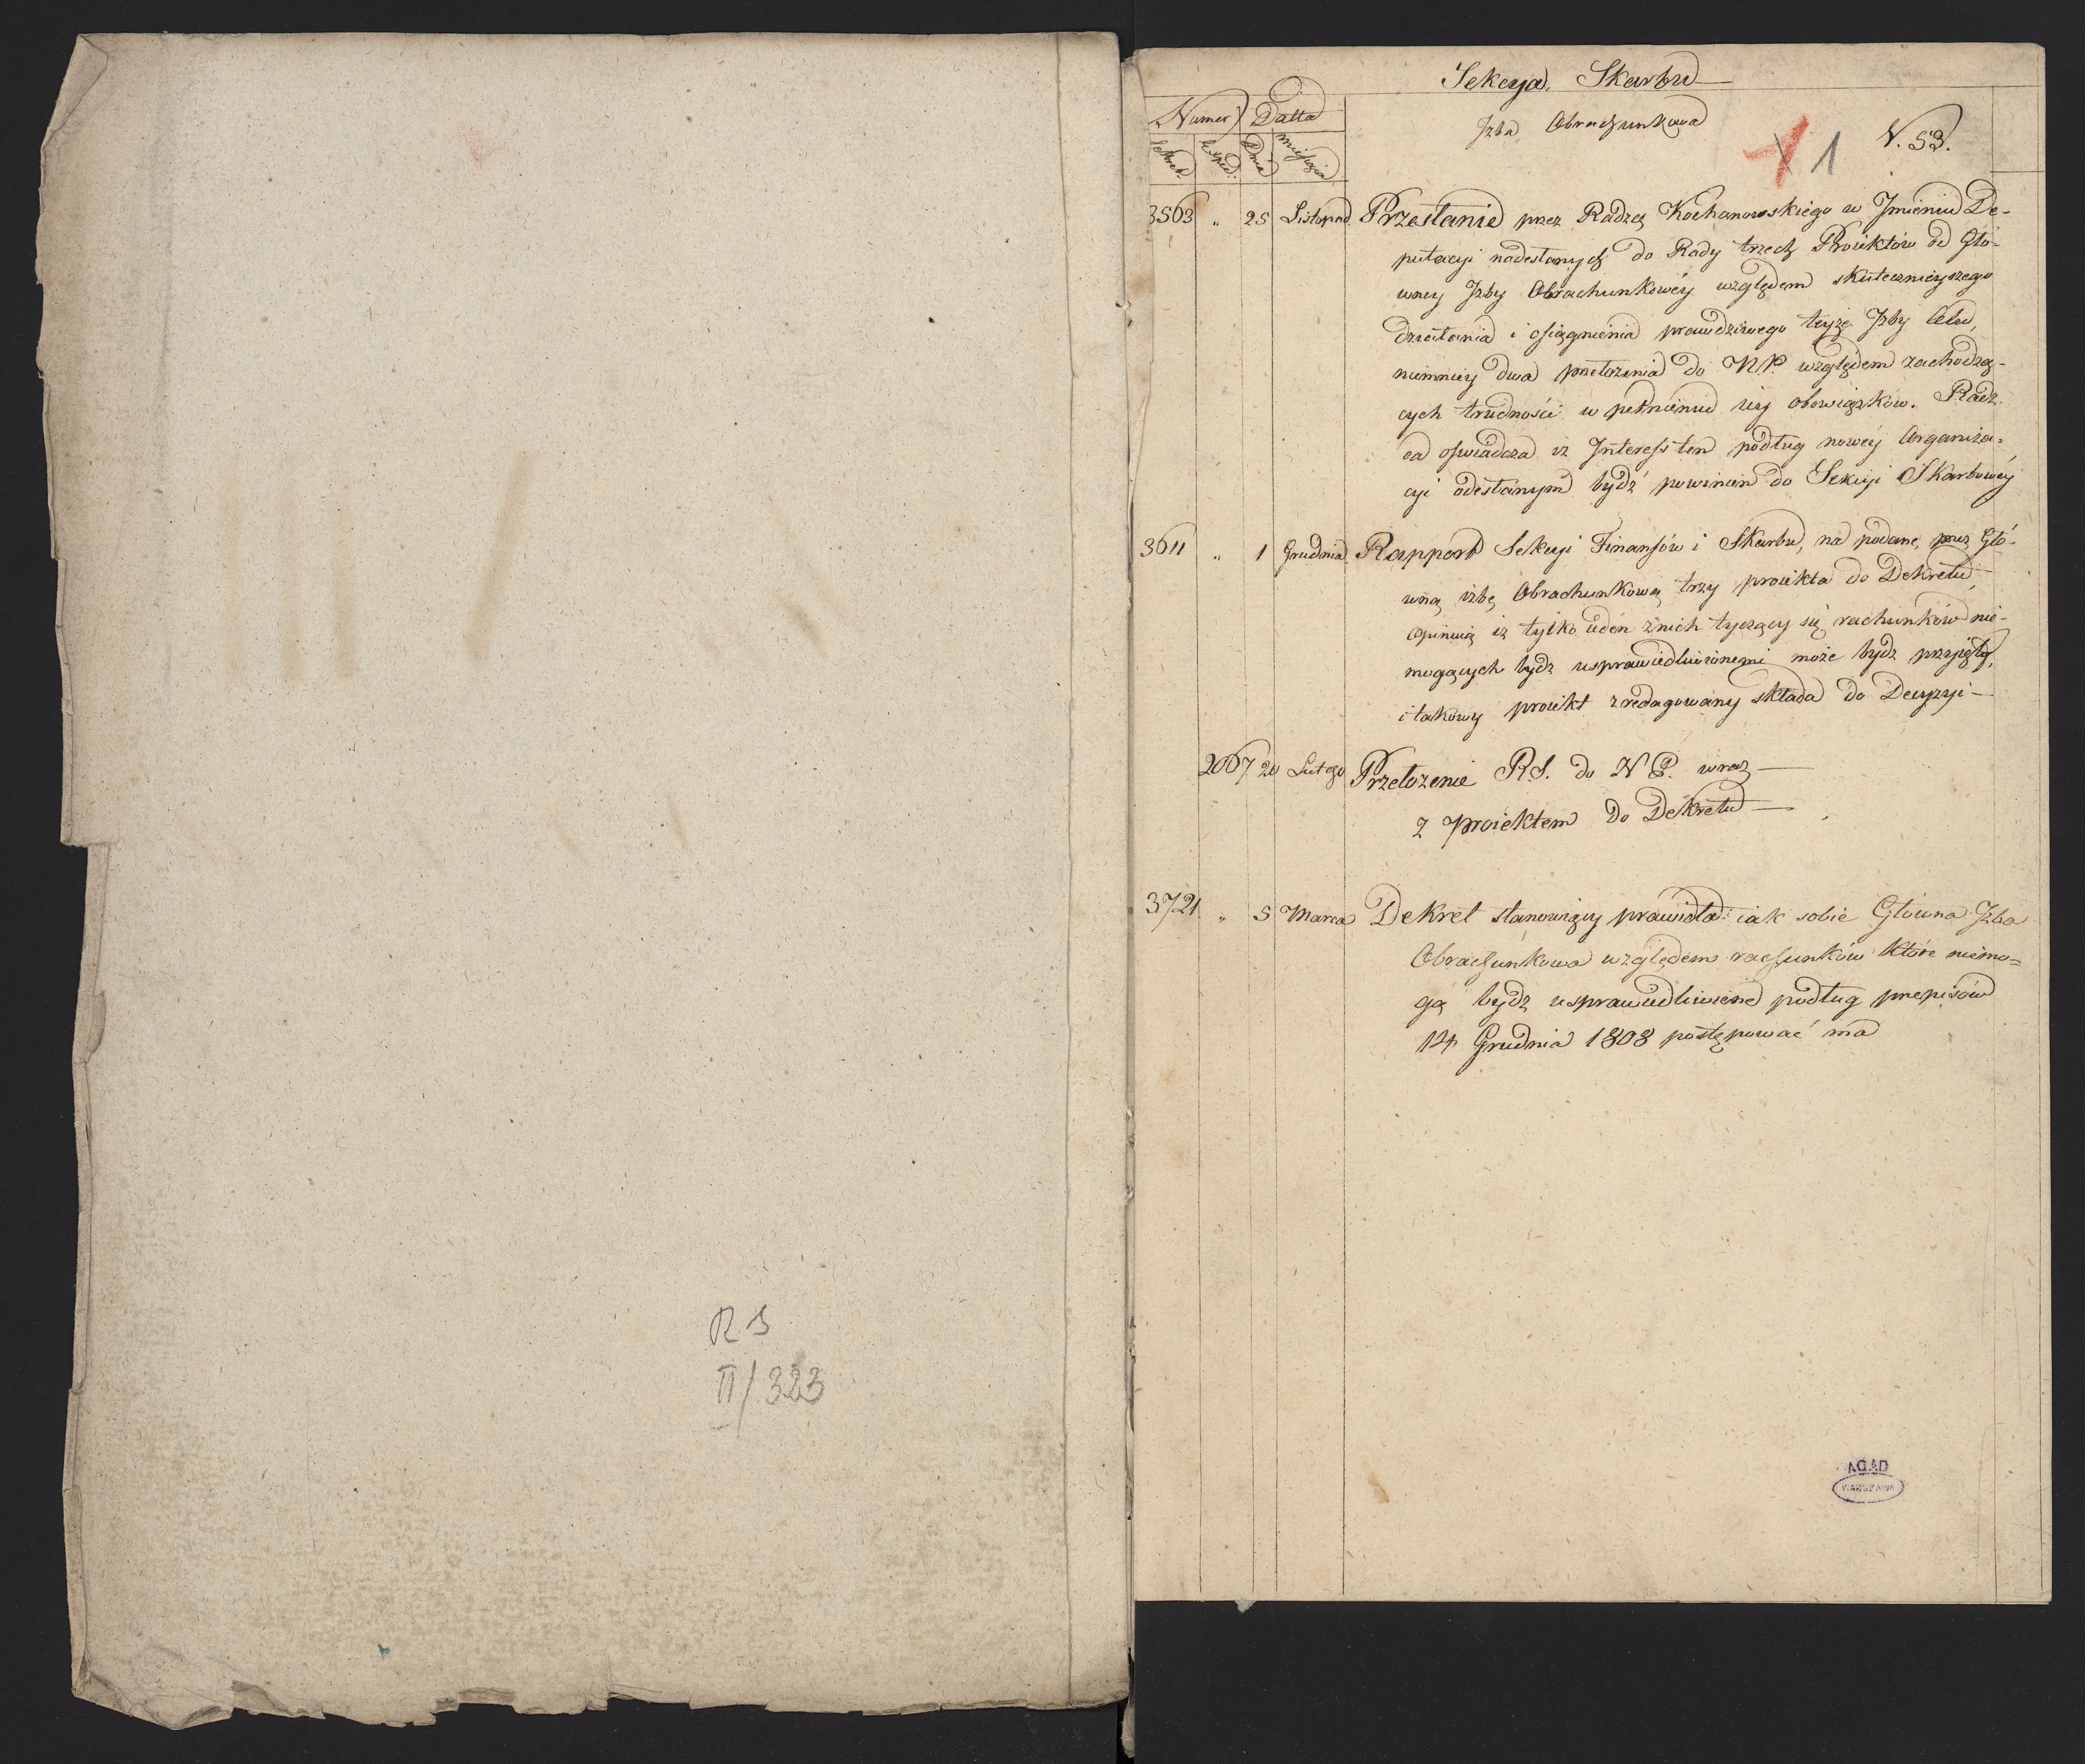 R S
II/323
Sekcya Skarbu
Numer Datta
Izba Obrachunkowa
1 N. 53.
Sekret. Exped. Dnia Miesiąca
3503 „ 25 Listopad Przesłanie przez Radzcę Kochanowskiego w Jmieniu De-
putacyi nadesłanych do Rady trzech Proiektów od Głó-
wney Jzby Obrachunkowéy względem skutecznieyszego
działania i osiągnienia prawdziwego teyże Jzby Celu,
niemniey dwa przełożenia do NP. względem zachodzą-
cych trudności w pełnieniu iey obowiązków. Radz-
ca oświadcza iż Jnteress ten podług nowéy Organiza-
cyi odesłanym bydź powinien do Sekcyi Skarbowéy
3611 „ 1 Grudnia Rapport Sekcyi Finansów i Skarbu, na podane przez Głó-
wną izbę Obrachunkową trzy proiekta do Dekretu,
opinuią iż tylko ieden z nich tyczący się rachunków nie-
mogących bydz usprawiedliwionemi może bydz przyięty,
i takowy proiekt zredagowany składa do Decyzyi
2067 20 Lutego Przełożenie R.S. do N P. wraz
z proiektem do Dekretu
3721 „ 5 Marca Dekret stanowiący prawidła: iak sobie Głowna Jzba
Obrachunkowa względem rachunków które niemo-
gą bydz usprawiedliwione podług przepisów
14 Grudnia 1808 postępować ma
AGAD
WARSZAWA